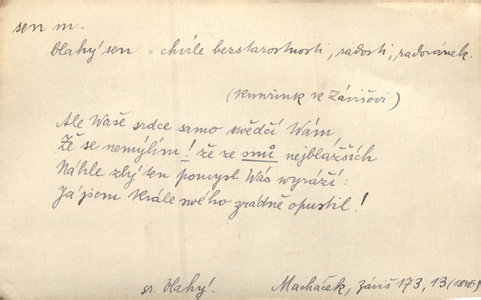 sen m.
blahý sen = chvíle bezstarostnosti, radosti, radovánek.
(Kunrink k Závišovi)
Ale Waše srdce samo swědčí Wám,
Že se nemýlím! že ze snů nejblažších
Náhle zlý ten pomysl Wás wyráží:
Já jsem Krále swého zrádně opustil!
sr. blahý!
Macháček, Záviš 173, 13 (1846)